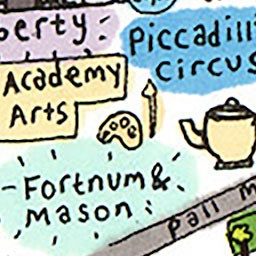 perty:
Piccadilli
Circus
Academy
Arts
Fortnum &
Mason
pall m